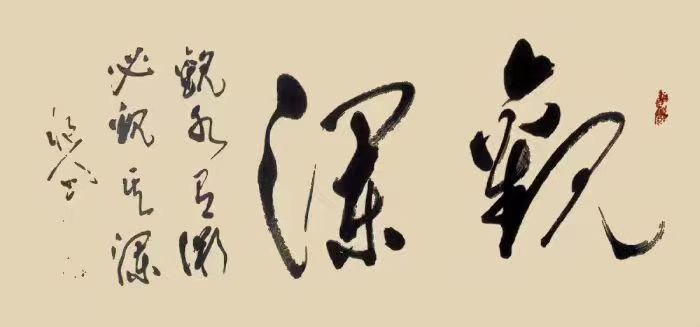 觀瀾
觀水有術
必觀其瀾